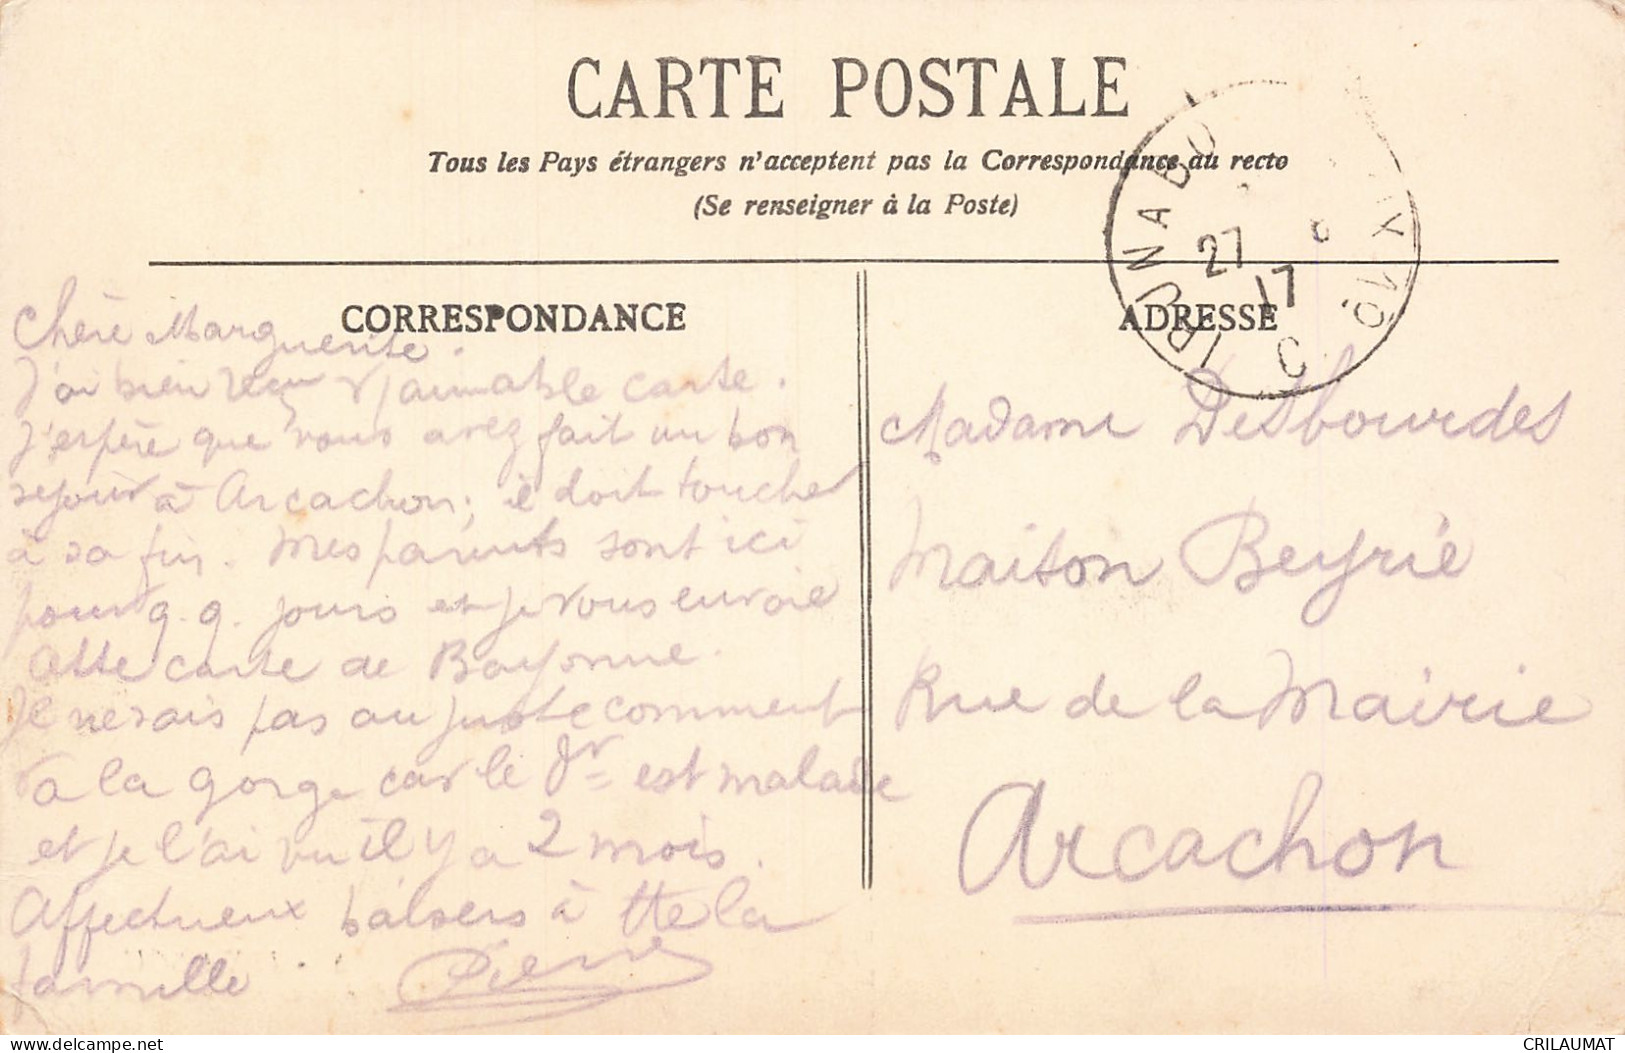 CARTE POSTALE
Tous les Pays étrangers n'acceptent pas la Correspondance au recto
(Se renseigner à la Poste)
27
17
CORRESPONDANCE
ADRESSE
Chère Marguerite.
J'ai bien reçu v/ aimable carte.
J'espère que vous avez fait un bon
séjour à Arcachon; il doit toucher
à sa fin. Mes parents sont ici
pour q.q. jours et je vous envoie
cette carte de Bayonne.
Je ne sais pas au juste comment
va la gorge car le Dr est malade
et je l'ai vu il y a 2 mois.
Affectueux baisers à tte la
famille
Pierre
Madame Desbourdes
Maison Beyrie
Rue de la Mairie
Arcachon
www.delcampe.net
CRILAUMAT